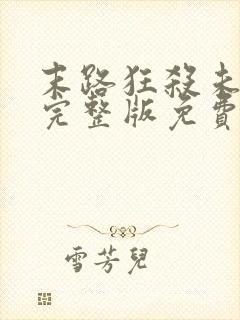 末路狂殺未
完整版免費
雪芳兒